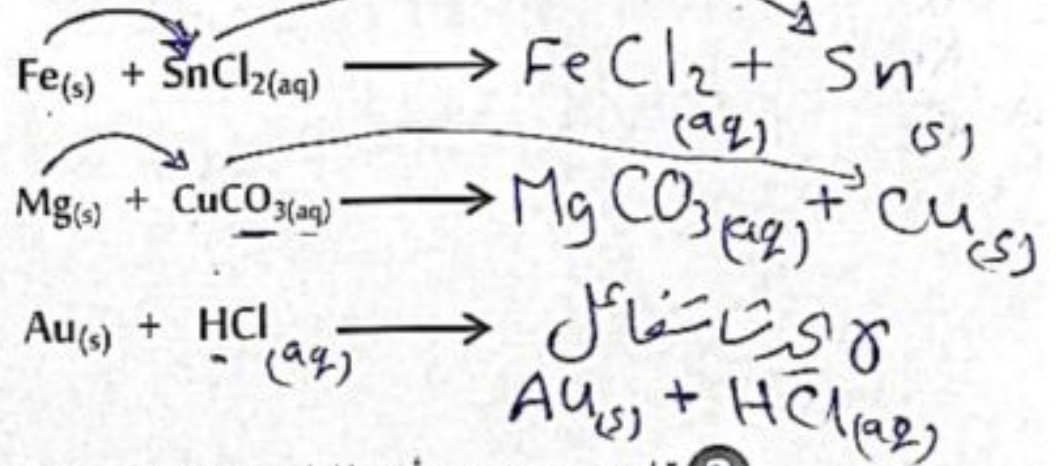 Fe(s) + SnCl₂(aq) ⟶ FeCl₂(aq) + Sn(s)
Mg(s) + CuCO₃(aq) ⟶ MgCO₃(aq) + Cu(s)
Au(s) + HCl(aq) ⟶
Au(s) + HCl(aq)